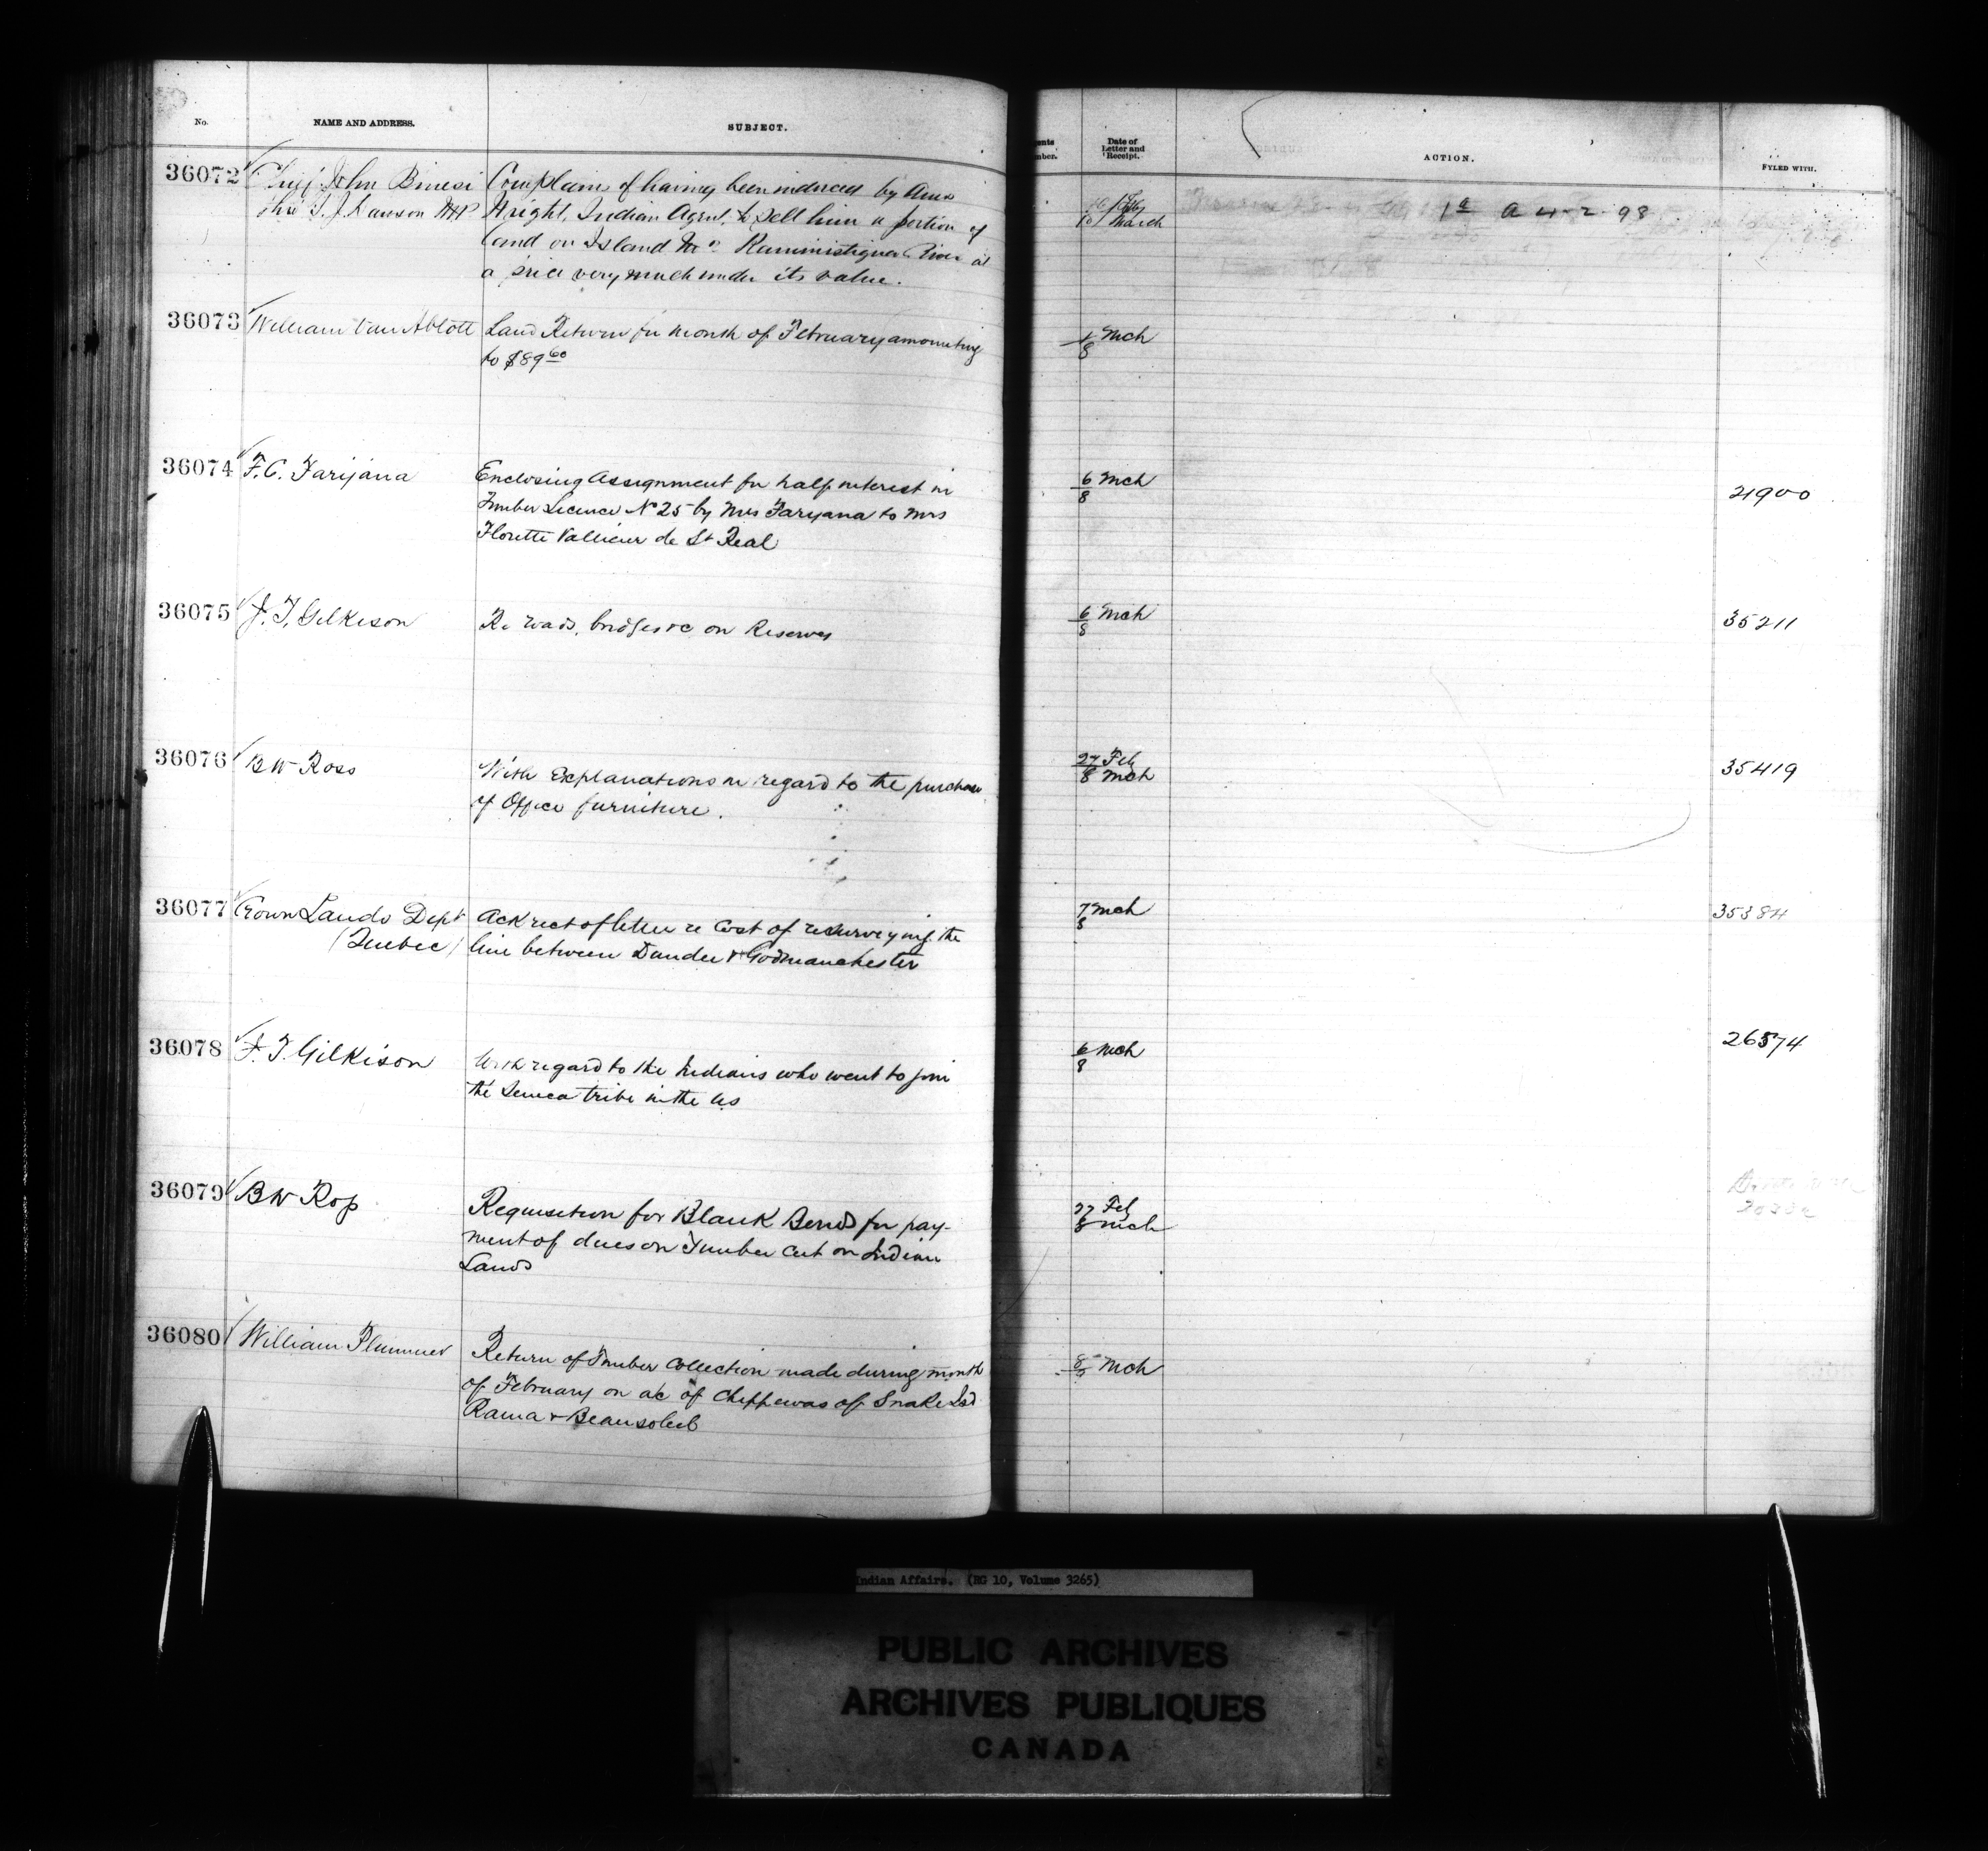 No.
NAME AND ADDRESS.
SUBJECT.
36072
Chief John Binesi
thro' S. J. Dawson MP
Complains of having been induced by Amos
Wright, Indian Agent, to sell him a portion of
land on Island No 2 Kaministiquia River at
a price very much under its value.
36073
William Van Abbott
Land Return for month of February amounting
to $89 60
36074
F. C. Farijana
Enclosing Assignment for half interest in
Timber Licence No 25 by Mrs Farijana to Mrs
Florette Vallieur de St Real
36075
J. T. Gilkison
Re roads, bridges &c on Reserves
36076
BW Ross
With Explanations in regard to the purchase
of Office furniture.
36077
Crown Lands Dept
(Quebec)
Ack rect of letter re Cost of resurveying the
line between Dundee & Godmanchester
36078
J. T. Gilkison
With regard to the Indians who went to join
the Seneca tribe in the US
36079
BW Ross
Requisition for Blank Bonds for pay-
ment of dues on Timber Cut on Indian
Lands
36080
William Plummer
Return of Timber Collection made during month
of February on a/c of Chippewas of Snake Isd
Rama & Beausoleil
ents
mber.
Date of
Letter and
Receipt.
ACTION.
FYLED WITH.
Feby
10 March
1a A 4-2-98
1 Mch
8
6 Mch
8
21900
6 Mch
8
35211
27 Feb
8 Mch
35419
7 Mch
8
35384
6 Mch
8
26574
27 Feb
8 Mch
8 Mch
Indian Affairs. (RG 10, Volume 3265)
PUBLIC ARCHIVES
ARCHIVES PUBLIQUES
CANADA